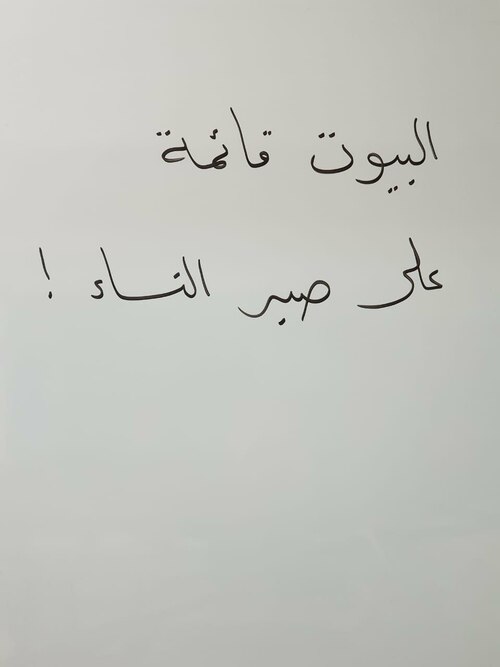 البيوت قائمة
على صبر النساء !